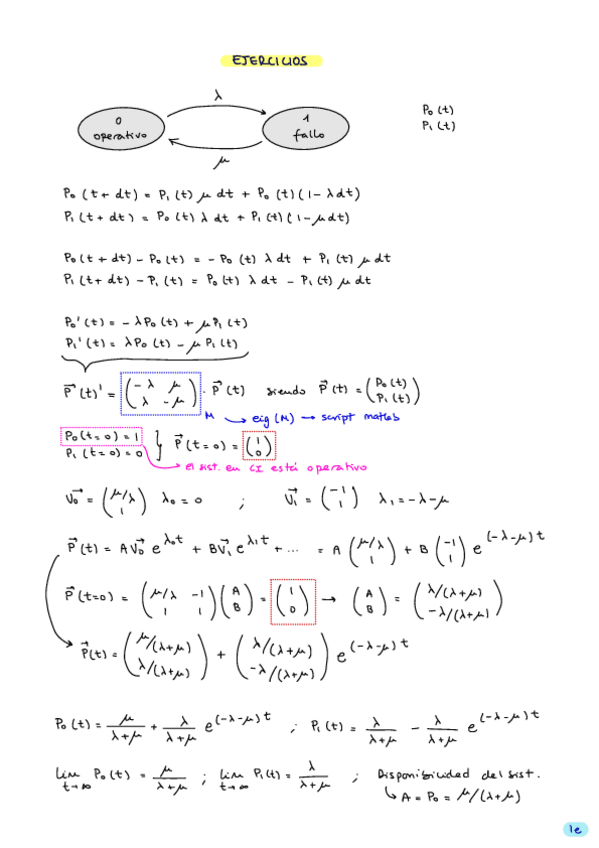 EJERCICIOS
λ
0
operativo
1
fallo
P₀(t)
P₁(t)
μ
P₀(t+dt) = P₁(t) μ dt + P₀(t)(1-λdt)
P₁(t+dt) = P₀(t) λ dt + P₁(t)(1-μdt)
P₀(t+dt) - P₀(t) = -P₀(t) λ dt + P₁(t) μ dt
P₁(t+dt) - P₁(t) = P₀(t) λ dt - P₁(t) μ dt
P₀'(t) = -λP₀(t) + μP₁(t)
P₁'(t) = λP₀(t) - μP₁(t)
P⃗(t)' = (-λ μ; λ -μ) · P⃗(t) siendo P⃗(t) = (P₀(t); P₁(t))
M → eig(M) → script matlab
P₀(t=0) = 1
P₁(t=0) = 0 } P⃗(t=0) = (1; 0)
el sist. en CI está operativo
V₀⃗ = (μ/λ; 1) λ₀ = 0 ; V₁⃗ = (-1; 1) λ₁ = -λ-μ
P⃗(t) = A V₀⃗ e^(λ₀t) + B V₁⃗ e^(λ₁t) + ... = A (μ/λ; 1) + B (-1; 1) e^((-λ-μ)t)
P⃗(t=0) = (μ/λ -1; 1 1)(A; B) = (1; 0) → (A; B) = (λ/(λ+μ); -λ/(λ+μ))
P⃗(t) = (μ/(λ+μ); λ/(λ+μ)) + (λ/(λ+μ); -λ/(λ+μ)) e^((-λ-μ)t)
P₀(t) = μ/(λ+μ) + λ/(λ+μ) e^((-λ-μ)t) ; P₁(t) = λ/(λ+μ) - λ/(λ+μ) e^((-λ-μ)t)
lim t→∞ P₀(t) = μ/(λ+μ) ; lim t→∞ P₁(t) = λ/(λ+μ) ; Disponibilidad del sist.
↳ A = P₀ = μ/(λ+μ)
1e